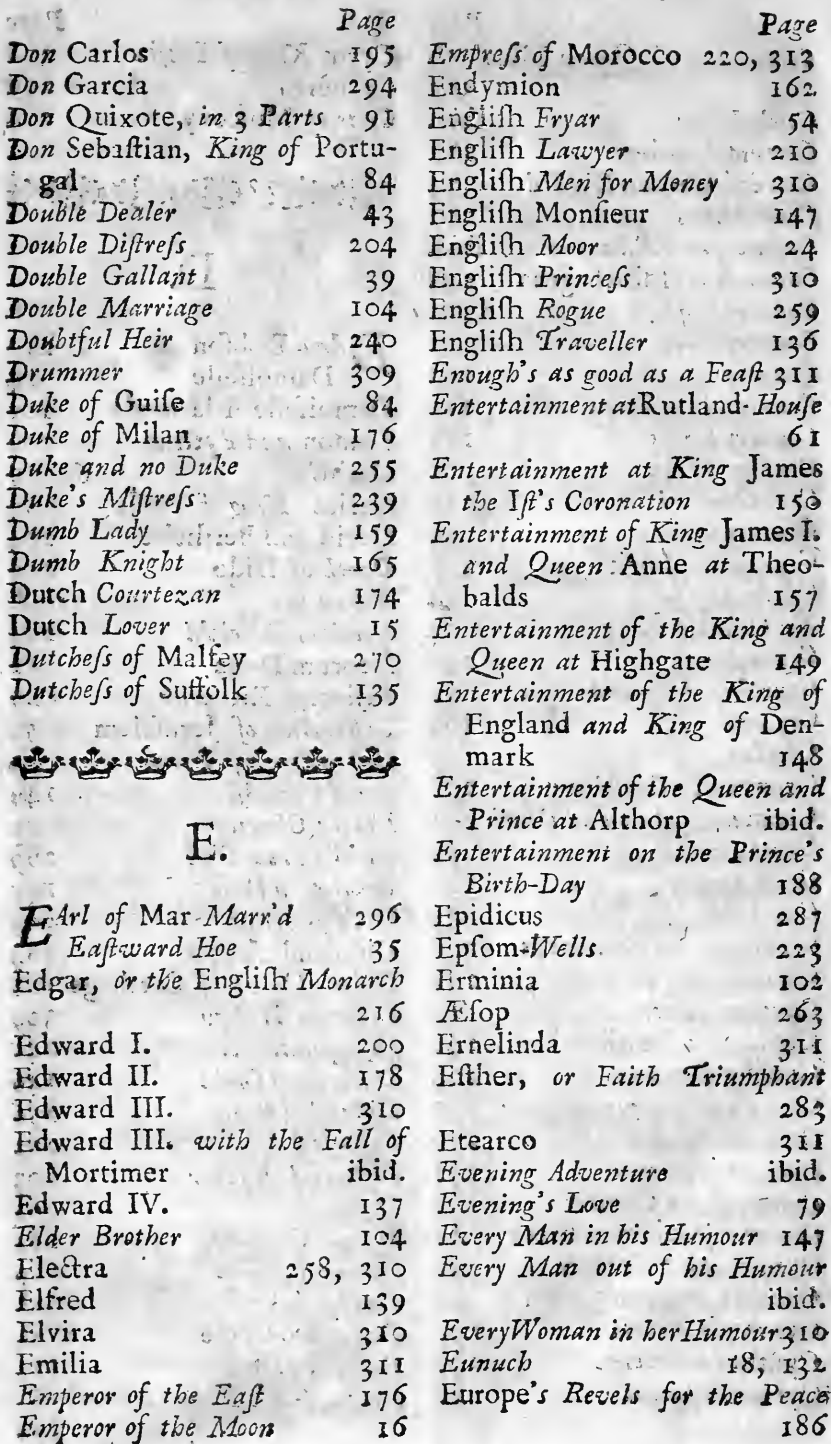 Page
Don Carlos 195
Don Garcia 294
Don Quixote, in 3 Parts 91
Don Sebaſtian, King of Portu-
gal 84
Double Dealer 43
Double Diſtreſs 204
Double Gallant 39
Double Marriage 104
Doubtful Heir 240
Drummer 309
Duke of Guiſe 84
Duke of Milan 176
Duke and no Duke 255
Duke's Miſtreſs 239
Dumb Lady 159
Dumb Knight 165
Dutch Courtezan 174
Dutch Lover 15
Dutcheſs of Malfey 270
Dutcheſs of Suffolk 135
E.
EArl of Mar Marr'd 296
Eaſtward Hoe 35
Edgar, or the Engliſh Monarch
216
Edward I. 200
Edward II. 178
Edward III. 310
Edward III. with the Fall of
Mortimer ibid.
Edward IV. 137
Elder Brother 104
Electra 258, 310
Elfred 139
Elvira 310
Emilia 311
Emperor of the Eaſt 176
Emperor of the Moon 16
Page
Empreſs of Morocco 220, 313
Endymion 162
Engliſh Fryar 54
Engliſh Lawyer 210
Engliſh Men for Money 310
Engliſh Monſieur 147
Engliſh Moor 24
Engliſh Princeſs 310
Engliſh Rogue 259
Engliſh Traveller 136
Enough's as good as a Feaſt 311
Entertainment at Rutland-Houſe
61
Entertainment at King James
the Iſt's Coronation 150
Entertainment of King James I.
and Queen Anne at Theo-
balds 157
Entertainment of the King and
Queen at Highgate 149
Entertainment of the King of
England and King of Den-
mark 148
Entertainment of the Queen and
Prince at Althorp ibid.
Entertainment on the Prince's
Birth-Day 188
Epidicus 287
Epſom-Wells 223
Erminia 102
Æſop 263
Ernelinda 311
Eſther, or Faith Triumphant
283
Etearco 311
Evening Adventure ibid.
Evening's Love 79
Every Man in his Humour 147
Every Man out of his Humour
ibid.
Every Woman in her Humour 310
Eunuch 18, 132
Europe's Revels for the Peace
186